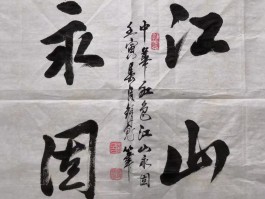 江山
永固
中華紅色江山永固
壬寅春月